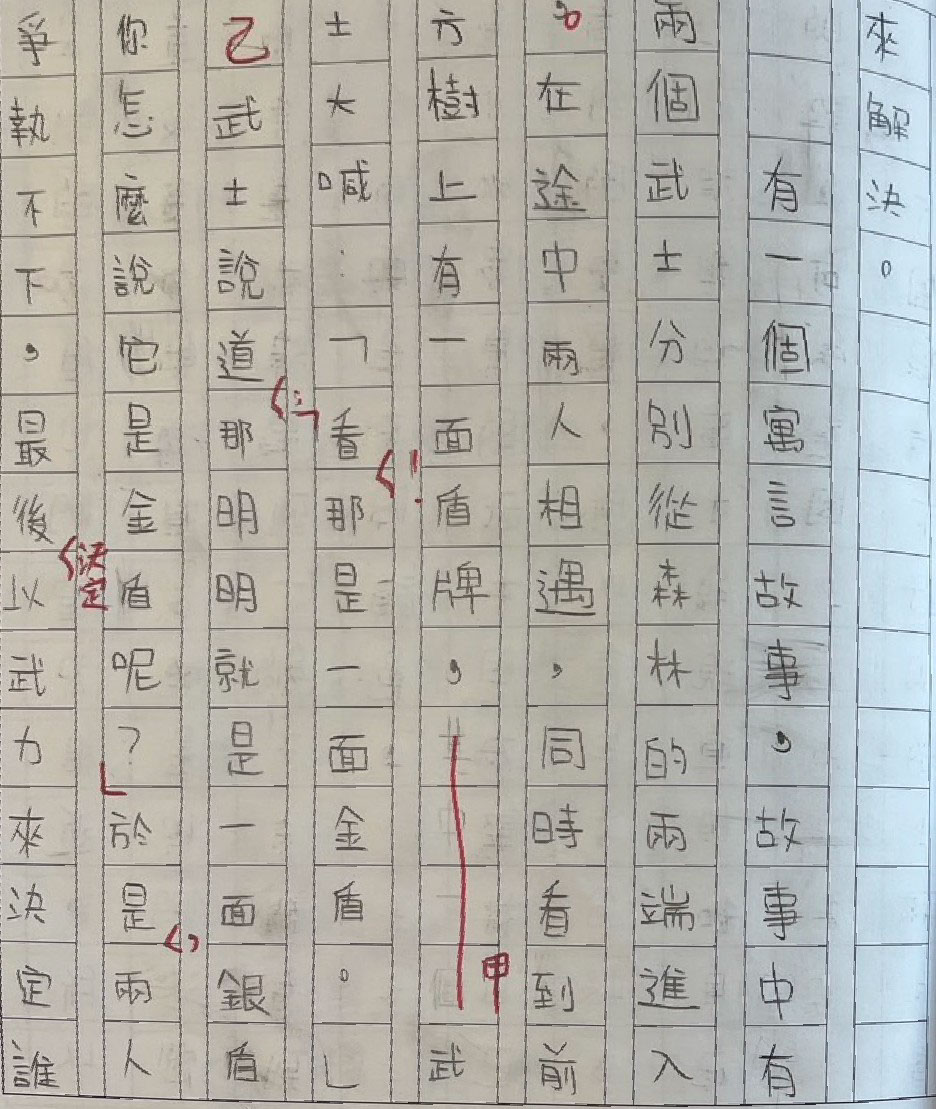 來解決。
有一個寓言故事，故事中有
兩個武士分別從森林的兩端進入
。在途中兩人相遇，同時看到前
方樹上有一面盾牌，甲武
士大喊：「看！那是一面金盾。」
乙武士說道：「那明明就是一面銀盾
你怎麼說它是金盾呢？」於是，兩人
爭執不下，最後決定以武力來決定誰